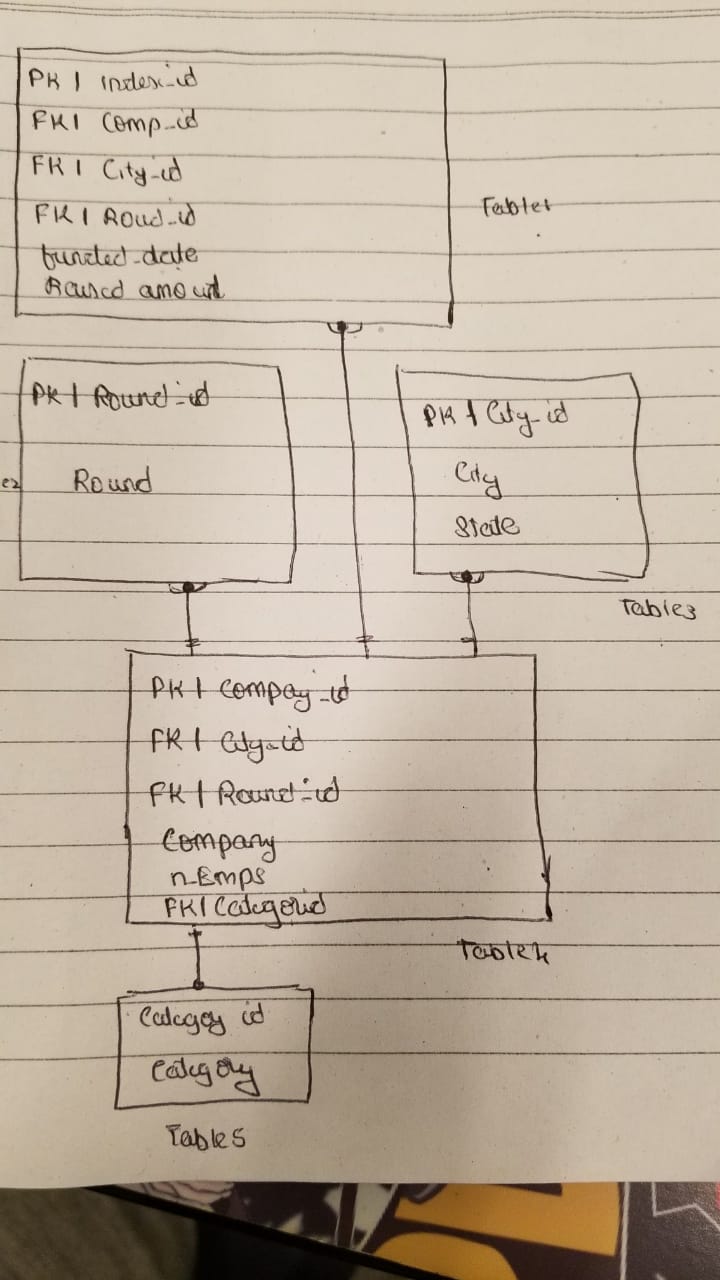 PK | index_id
FK | Comp_id
FK | City_id
FK | Roud_id
funded_date
Raised amount
Table1
PK | Round_id
Round
e2
PK | City_id
City
State
Table3
PK | Compay_id
FK | City_id
FK | Round_id
Company
n_Emps
FK | Categorid
Table4
Categoy id
Category
Table5